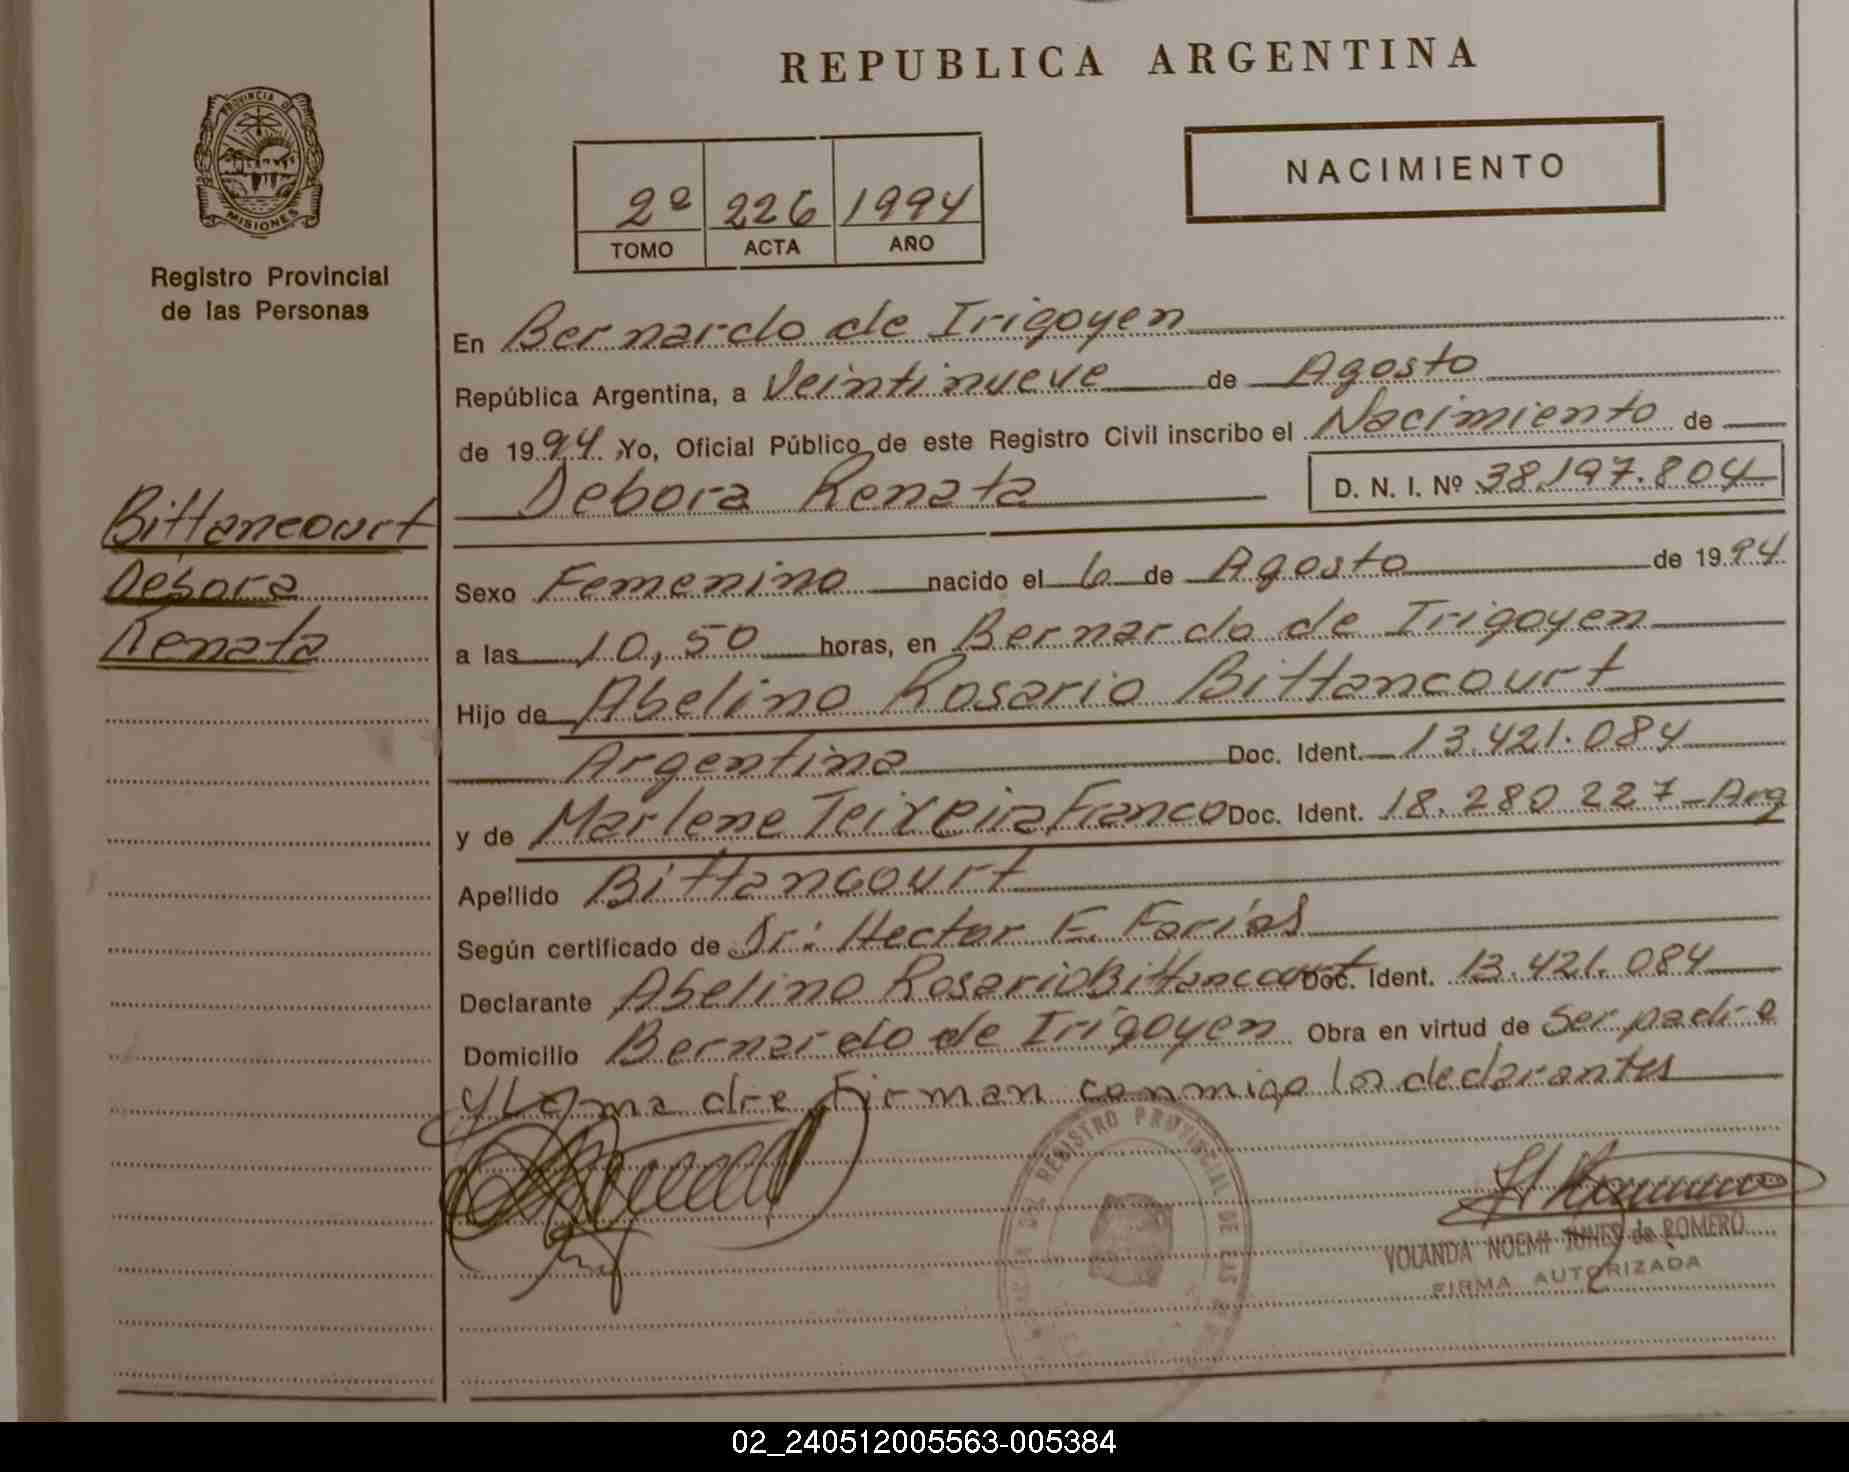 REPUBLICA ARGENTINA
PROVINCIA DE
MISIONES
Registro Provincial
de las Personas
NACIMIENTO
2º 226 1994
TOMO ACTA AÑO
Bittancourt
Débora
Renata
En Bernardo de Irigoyen
República Argentina, a Veintinueve de Agosto
de 1994. Yo, Oficial Público de este Registro Civil inscribo el Nacimiento de
Debora Renata D. N. I. Nº 38.197.804
Sexo Femenino nacido el 6 de Agosto de 1994.
a las 10,50 horas, en Bernardo de Irigoyen
Hijo de Abelino Rosario Bittancourt
Argentina Doc. Ident. 13.421.084
y de Marlene Teixeira Franco Doc. Ident. 18.280 227 - Arg
Apellido Bittancourt
Según certificado de Dr: Hector E. Farías
Declarante Abelino Rosario Bittancourt Doc. Ident. 13.421.084
Domicilio Bernardo de Irigoyen Obra en virtud de Ser padre
y La madre Firman conmigo los declarantes
REGISTRO PROVINCIAL DE LAS
YOLANDA NOEMI JUNES de ROMERO
FIRMA AUTORIZADA
02_240512005563-005384